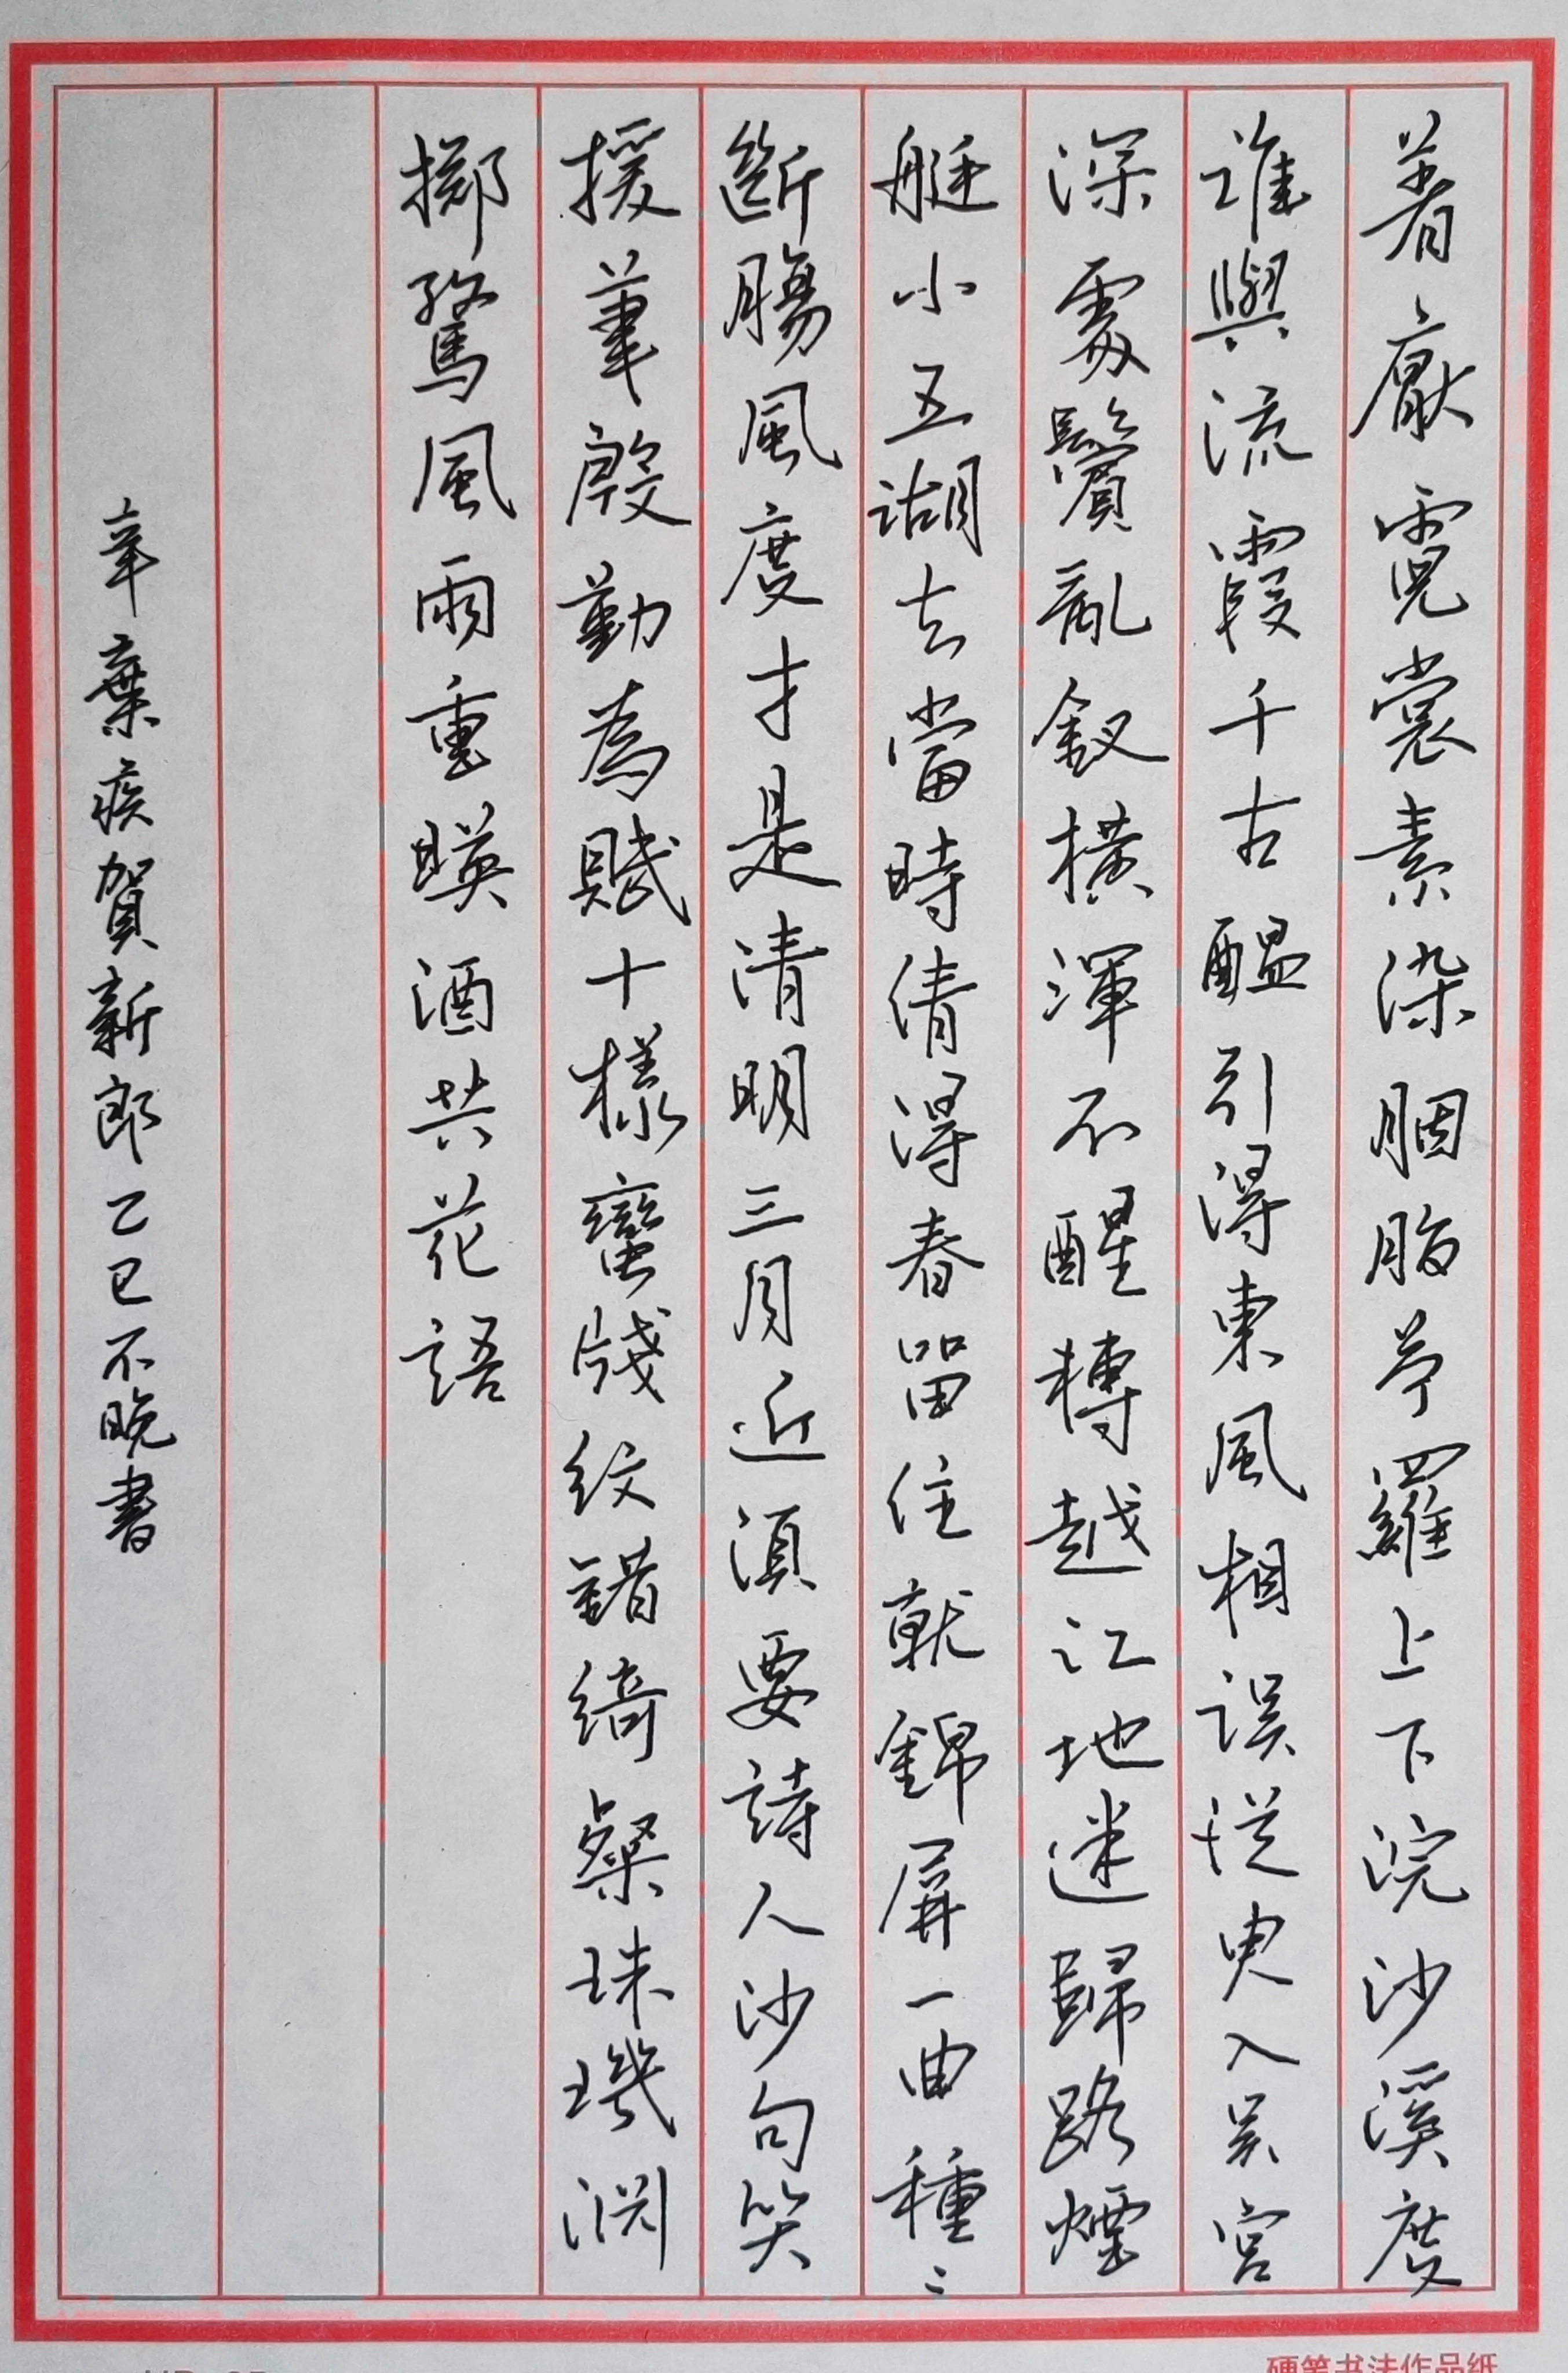 著厭霓裳素染胭脂苧羅上下浣沙溪度
誰與流霞千古醖引得東風相誤從臾入吴宫
深處鬢亂釵橫渾不醒轉越江地迷歸路煙
艇小五湖去當時倩得春留住就錦屏一曲種〻
斷腸風度才是清明三月近須要詩人沙句笑
援筆殷勤為賦十樣蠻牋紋錯綺粲珠璣淵
擲騖風雨重暎酒共花語
辛棄疾賀新郎乙巳不晚書
硬笔书法作品纸